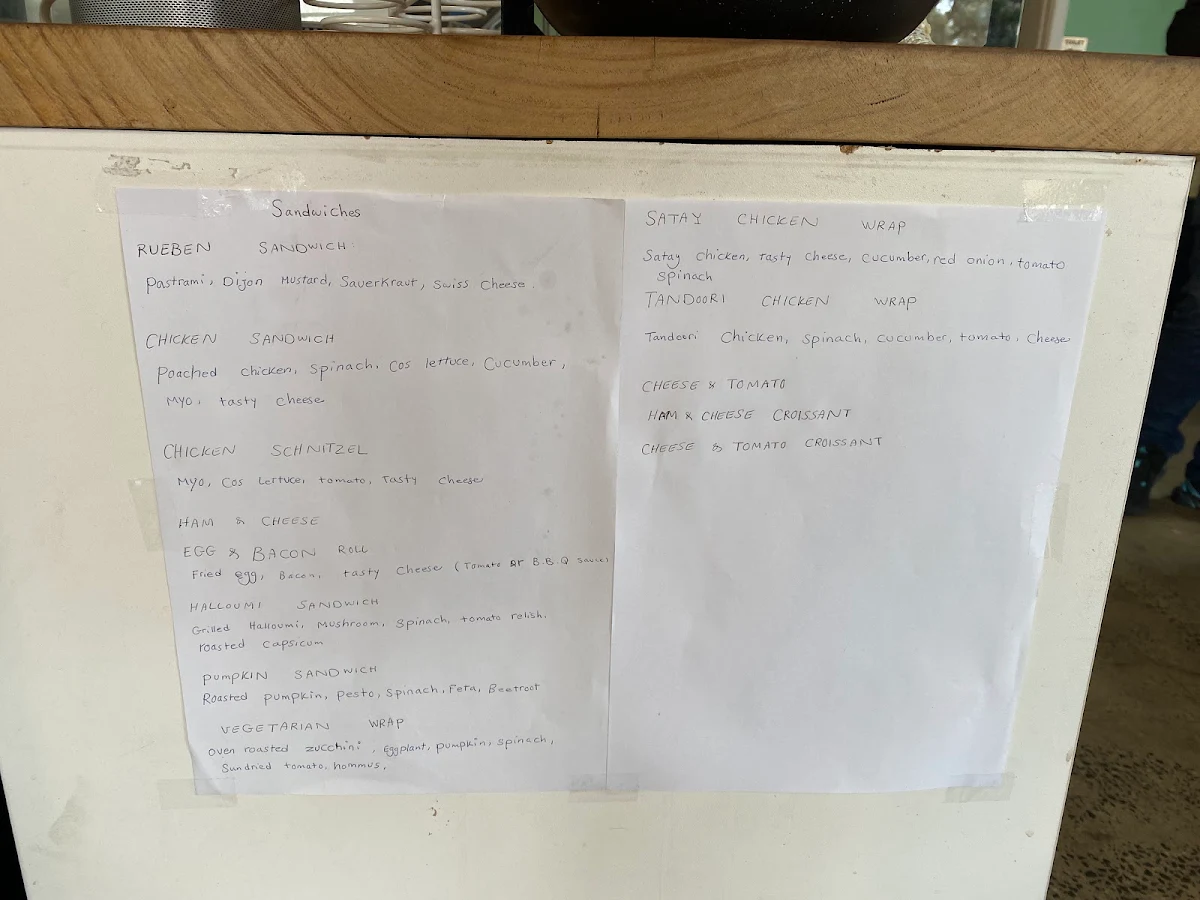 Sandwiches
RUEBEN SANDWICH:
Pastrami, Dijon Mustard, Sauerkraut, Swiss Cheese.
CHICKEN SANDWICH
Poached chicken, Spinach, Cos lettuce, Cucumber,
MYO, tasty cheese
CHICKEN SCHNITZEL
MYO, Cos Lettuce, tomato, Tasty cheese
HAM & CHEESE
EGG & BACON ROLL
Fried egg, Bacon, tasty Cheese (Tomato or B.B.Q sauce)
HALLOUMI SANDWICH
Grilled Halloumi, Mushroom, Spinach, tomato relish,
roasted capsicum
PUMPKIN SANDWICH
Roasted pumpkin, pesto, Spinach, Feta, Beetroot
VEGETARIAN WRAP
oven roasted zucchini, Eggplant, pumpkin, spinach,
Sundried tomato, hommus.
SATAY CHICKEN WRAP
Satay chicken, Tasty Cheese, Cucumber, red onion, tomato
spinach
TANDOORI CHICKEN WRAP
Tandoori Chicken, Spinach, cucumber, tomato, Cheese
CHEESE & TOMATO
HAM & CHEESE CROISSANT
CHEESE & TOMATO CROISSANT